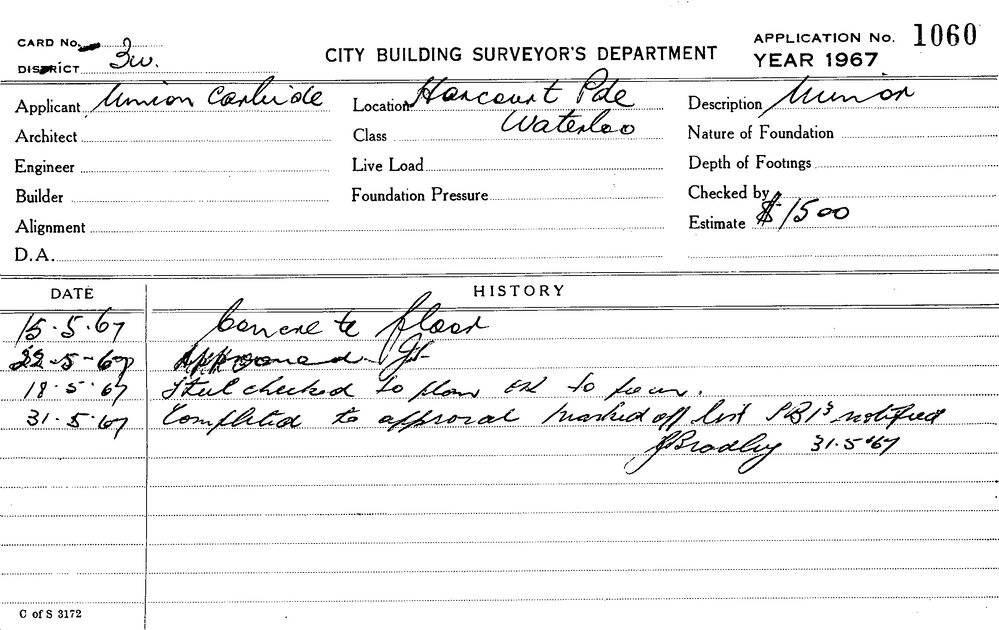 CARD No.
DISTRICT 3w.
CITY BUILDING SURVEYOR'S DEPARTMENT
APPLICATION No. 1060
YEAR 1967
Applicant Union Carbide
Location Harcourt Pde
Waterloo
Description Minor
Architect
Class
Nature of Foundation
Engineer
Live Load
Depth of Footings
Builder
Foundation Pressure
Checked by
Alignment
Estimate $1500
D.A.
DATE HISTORY
15.5.67 Concrete floor
22-5-67 Approved
18.5.67 Steel checked to plan OK to pour.
31.5.67 Completed to approval marked off list PB1s notified
JBradley 31.5.67
C of S 3172